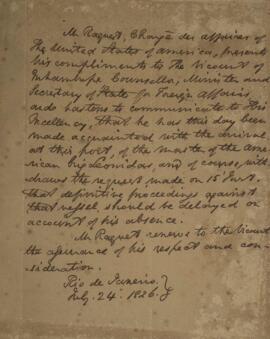 Mr Raguet, Chargé des affaires of
the United States of America, presents
his compliments to the Viscount of
Inhambupe Counsellor, Minister and
Secretary of State for Foreign Affairs
and hastens to communicate to His
Excellency, that he has this day been
made acquainted with the arrival
at this port, of the master of the Ame-
rican brig Leonidas, and of course, with-
draws the request made on 15 Inst.
that definitive proceedings against
that vessel should be delayed on
account of his absence.
Mr Raguet renews to the Viscount
the assurance of his respect and con-
sideration.
Rio de Janeiro
July 24. 1826.